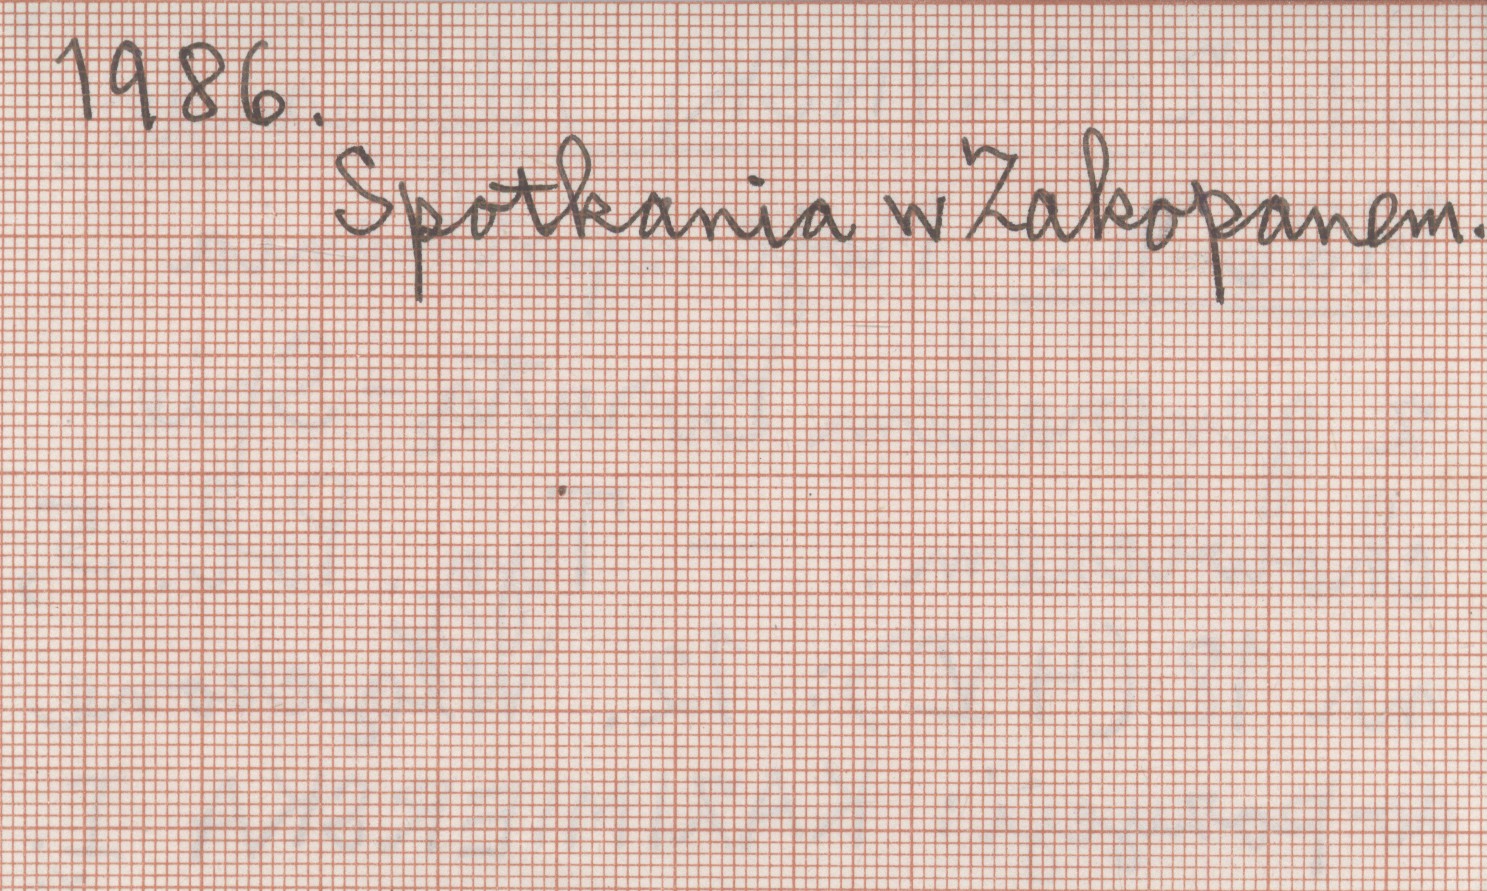 1986.
Spotkania w Zakopanem.